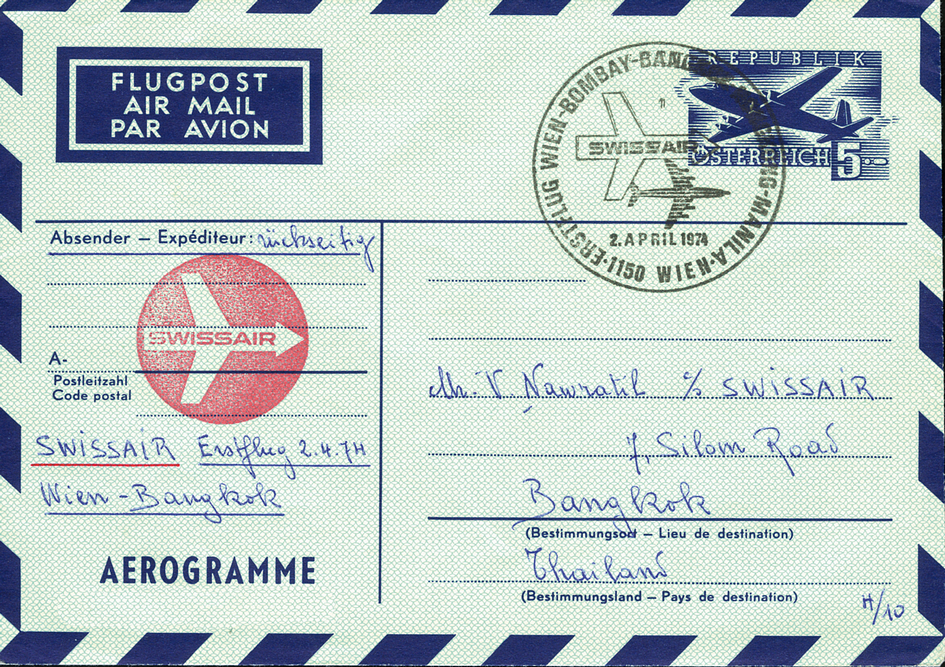 FLUGPOST
AIR MAIL
PAR AVION
REPUBLIK
ÖSTERREICH 5
ERSTFLUG WIEN-BOMBAY-BANG
NG-MANILA
SWISSAIR
2. APRIL 1974
1150 WIEN
Absender – Expéditeur: rückseitig
SWISSAIR
A-
Postleitzahl
Code postal
SWISSAIR Erstflug 2.4.74
Wien - Bangkok
AEROGRAMME
Mr. V. Nawratil c/o SWISSAIR
7, Silom Road
Bangkok
(Bestimmungsort – Lieu de destination)
Thailand
(Bestimmungsland – Pays de destination)
H/10